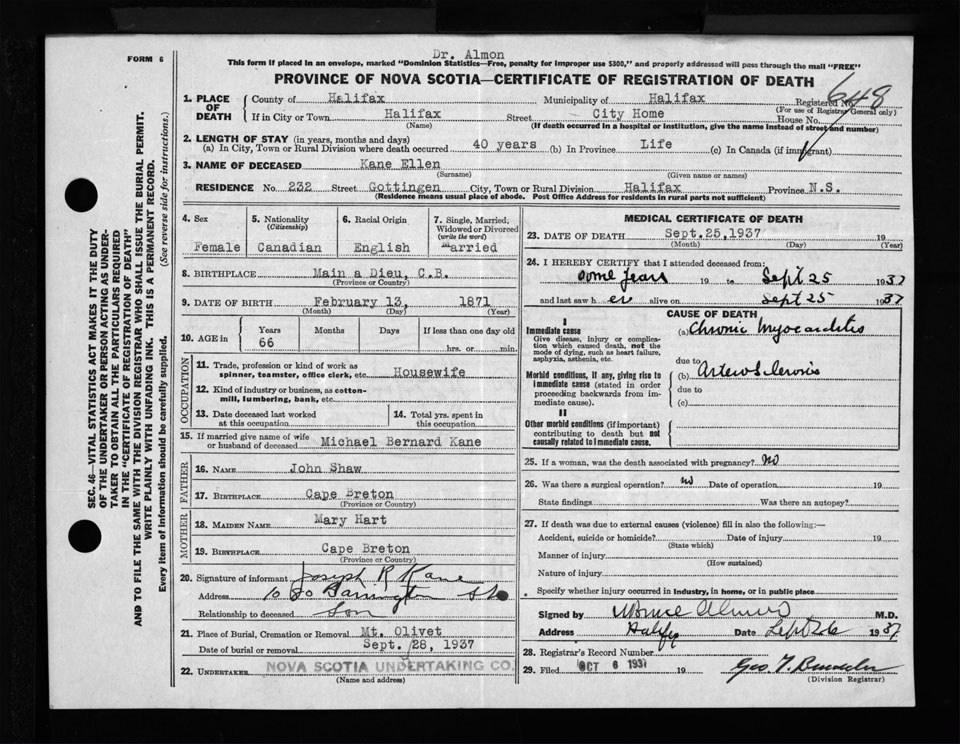 Dr. Almon
FORM 6
This form if placed in an envelope, marked "Dominion Statistics—Free, penalty for improper use $300," and properly addressed will pass through the mail "FREE"
PROVINCE OF NOVA SCOTIA—CERTIFICATE OF REGISTRATION OF DEATH
648
1. PLACE OF DEATH
County of Halifax Municipality of Halifax Registered No.
(For use of Registrar General only)
If in City or Town Halifax Street City Home House No.
(Name) (If death occurred in a hospital or institution, give the name instead of street and number)
2. LENGTH OF STAY (in years, months and days)
(a) In City, Town or Rural Division where death occurred 40 years (b) In Province Life (c) In Canada (if immigrant)
3. NAME OF DECEASED Kane Ellen
(Surname) (Given name or names)
RESIDENCE No. 232 Street Gottingen City, Town or Rural Division Halifax Province N.S.
(Residence means usual place of abode. Post Office Address for residents in rural parts not sufficient)
4. Sex
Female
5. Nationality
(Citizenship)
Canadian
6. Racial Origin
English
7. Single, Married, Widowed or Divorced
(write the word)
Married
8. BIRTHPLACE Main a Dieu, C.B.
(Province or Country)
9. DATE OF BIRTH February 13, 1871
(Month) (Day) (Year)
10. AGE in
Years Months Days If less than one day old
66 hrs. or min.
OCCUPATION
11. Trade, profession or kind of work as
spinner, teamster, office clerk, etc. Housewife
12. Kind of industry or business, as cotton-
mill, lumbering, bank, etc.
13. Date deceased last worked
at this occupation
14. Total yrs. spent in
this occupation
15. If married give name of wife
or husband of deceased Michael Bernard Kane
FATHER
16. NAME John Shaw
17. BIRTHPLACE Cape Breton
(Province or Country)
MOTHER
18. MAIDEN NAME Mary Hart
19. BIRTHPLACE Cape Breton
(Province or Country)
20. Signature of informant Joseph R Kane
Address Barrington St
Relationship to deceased Son
21. Place of Burial, Cremation or Removal Mt. Olivet
Date of burial or removal Sept. 28, 1937
22. UNDERTAKER NOVA SCOTIA UNDERTAKING CO.
(Name and address)
MEDICAL CERTIFICATE OF DEATH
23. DATE OF DEATH Sept.25,1937 19
(Month) (Day) (Year)
24. I HEREBY CERTIFY that I attended deceased from:
Some Years 19 to Sept 25 1937
and last saw her alive on Sept 25 1937
CAUSE OF DEATH
I
Immediate cause
Give disease, injury or complica-
tion which caused death, not the
mode of dying, such as heart failure,
asphyxia, asthenia, etc.
(a) Chronic Myocarditis
due to
Morbid conditions, if any, giving rise to
immediate cause (stated in order
proceeding backwards from im-
mediate cause).
(b) Arteriosclerosis
due to
(c)
II
Other morbid conditions (if important)
contributing to death but not
causally related to immediate cause.
25. If a woman, was the death associated with pregnancy? No
26. Was there a surgical operation? No Date of operation 19
State findings Was there an autopsy?
27. If death was due to external causes (violence) fill in also the following:—
Accident, suicide or homicide? Date of injury 19
(State which)
Manner of injury
(How sustained)
Nature of injury
Specify whether injury occurred in industry, in home, or in public place
Signed by Bruce Almon M.D.
Address Halifx Date Sept 26 1937
28. Registrar's Record Number
29. Filed OCT 6 1937 19 Geo. T.
(Division Registrar)
SEC. 46—VITAL STATISTICS ACT MAKES IT THE DUTY
OF THE UNDERTAKER OR PERSON ACTING AS UNDER-
TAKER TO OBTAIN ALL THE PARTICULARS REQUIRED
IN THE "CERTIFICATE OF REGISTRATION OF DEATH"
AND TO FILE THE SAME WITH THE DIVISION REGISTRAR WHO SHALL ISSUE THE BURIAL PERMIT.
WRITE PLAINLY WITH UNFADING INK. THIS IS A PERMANENT RECORD.
Every item of information should be carefully supplied. (See reverse side for instructions.)